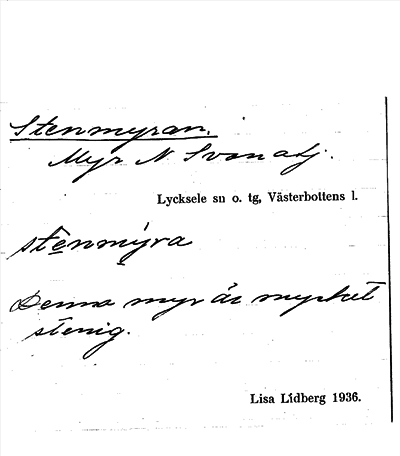 Stenmyran.
Myr N Svanatj.
Lycksele sn o. tg, Västerbottens l.
stẹnmỵra
Denna myr är mycket
stenig.
Lisa Lidberg 1936.